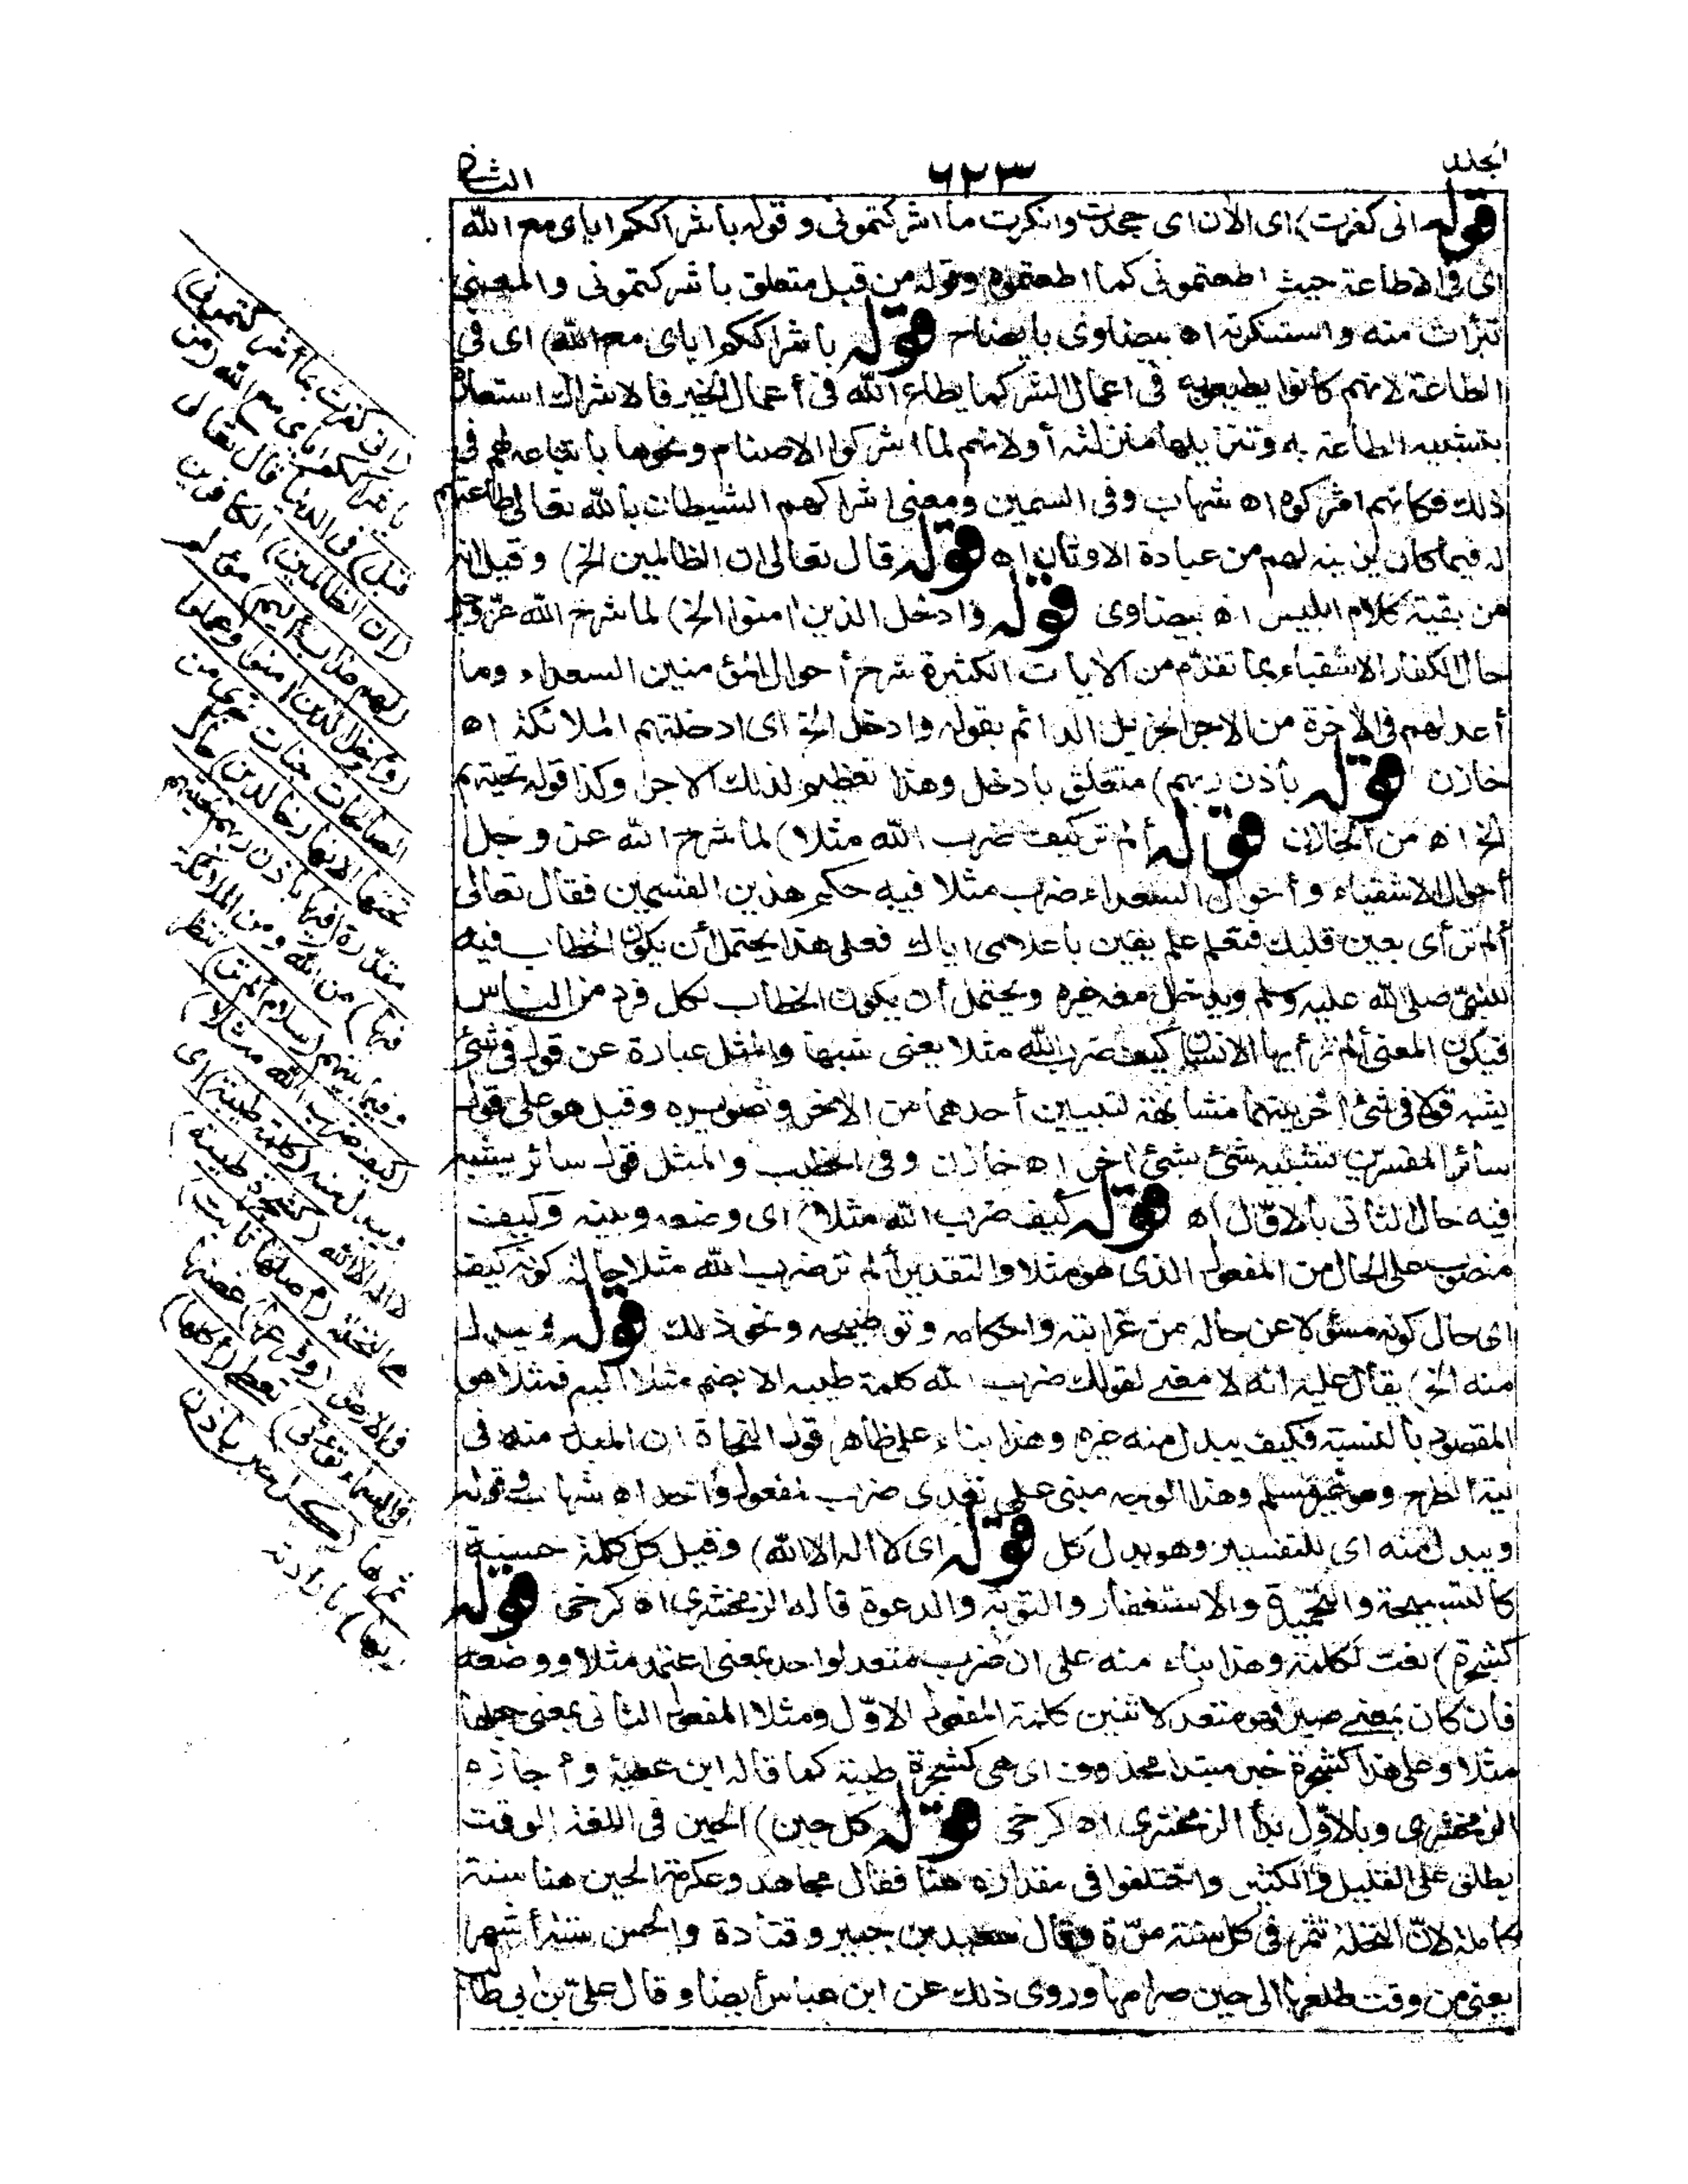 الجلد
٦٢٣
الثانى
قوله انى كفرت) اى الآن اى جحدت وانكرت ما اشركتمونى وقوله باشراككم اياى مع الله
اى فى الاطاعة حيث اطعتمونى كما اطعتموه وقوله من قبل متعلق باشركتمونى والمعنى
تبرأت منه واستنكرته اه بيضاوى بايضاح قوله باشراككم اياى مع الله) اى فى
الطاعة لانهم كانوا يطيعونه فى اعمال الشر كما يطاع الله فى أعمال الخير فالاشراك استعارة
بتشبيه الطاعة به وتنزيلها منزلته أو لانهم لما اشركوا الاصنام ونحوها باتباعهم لهم فى
ذلك فكانهم اشركوه اه شهاب وفى السمين ومعنى اشراكهم الشيطان بالله تعالى طاعتهم
له فيما كان يزينه لهم من عبادة الاوثان اه قوله قال تعالى ان الظالمين الخ) وقيل انه
من بقية كلام ابليس اه بيضاوى قوله وادخل الذين امنوا الخ) لما شرح الله عز وجل
حال الكفار الاشقياء بما تقدّم من الآيات الكثيرة شرح أحوال المؤمنين السعداء وما
أعد لهم فى الآخرة من الاجر الجزيل الدائم بقوله وادخل الخ اى ادخلتهم الملائكة اه
خازن قوله باذن ربهم) متعلق بادخل وهذا تعظيم لذلك الاجر وكذا قوله تحيتهم
الخ اه من الخازن قوله ألم تر كيف ضرب الله مثلا) لما شرح الله عز وجل
أحوال الاشقياء وأحوال السعداء ضرب مثلا فيه حكم هذين القسمين فقال تعالى
ألم تر أى بعين قلبك فتعلم علم يقين باعلامى اياك فعلى هذا يحتمل أن يكون الخطاب فيه
للنبىّ صلى الله عليه وسلم ويدخل معه غيره ويحتمل أن يكون الخطاب لكل فرد من الناس
فيكون المعنى ألم تر أيها الانسان كيف ضرب الله مثلا يعنى شبها والمثل عبارة عن قول فى شئ
يشبه قولا فى شئ اخر بينهما مشابهة لتبيين أحدهما من الاخر وتصويره وقيل هو على قول
سائر المفسرين تشبيه شئ بشئ اخر اه خازن وفى الخطيب والمثل قول سائر يشبه
فيه حال الثانى بالاوّل اه قوله كيف ضرب الله مثلا) اى وضعه وبينه وكيف
منصوب على الحال من المفعول الذى هو مثلا والتقدير ألم تر ضرب الله مثلا حالة كونه كيف
اى حال كونه مسؤلا عن حاله من غرابته واحكامه وتوضيحه ونحو ذلك قوله ويبدل
منه الخ) يقال عليه انه لا معنى لقولك ضرب الله كلمة طيبة الا بضم مثلا اليه فمثلا هو
المقصود بالنسبة فكيف يبدل منه غيره وهذا بناء على ظاهر قول النحاة ان المبدل منه فى
نية الطرح وهو غير مسلم وهذا الوجه مبنى على تعدى ضرب لمفعول واحد اه شهاب وقوله
ويبدل منه اى للتفسير وهو بدل كل قوله اى لا اله الا الله) وقيل كل كلمة حسنة
كالتسبيحة والتحميدة والاستغفار والتوبة والدعوة قاله الزمخشرى اه كرخى قوله
كشجرة) نعت لكلمة وهذا بناء منه على ان ضرب متعد لواحد بمعنى اعتمد مثلا ووضعه
فان كان بمعنى صير فهو متعد لاثنين كلمة المفعول الاوّل ومثلا المفعول الثانى بمعنى جعلها
مثلا وعلى هذا كشجرة خبر مبتدا محذوف اى هى كشجرة طيبة كما قاله ابن عطية وأجازه
الزمخشرى وبالاوّل بدأ الزمخشرى اه كرخى قوله كل حين) الحين فى اللغة الوقت
يطلق على القليل والكثير واختلفوا فى مقداره هنا فقال مجاهد وعكرمة الحين هنا سنة
كاملة لانّ النخلة تثمر فى كل سنة مرّة وقال سعيد بن جبير وقتادة والحسن ستة أشهر
يعنى من وقت طلعها الى حين صرامها وروى ذلك عن ابن عباس أيضا وقال علىّ بن ابى طالب
(انى كفرت بما أشركتمونى)
باشراككم اياى مع الله (من
قبل) فى الدنيا قال تعالى
(ان الظالمين) الكافرين
(لهم عذاب أليم) مؤلم
(وأدخل الذين امنوا وعملوا
الصالحات جنات تجرى من
تحتها الانهار خالدين) حال
مقدّرة (فيها باذن ربهم تحيتهم
فيها) من الله ومن الملائكة
وفيما بينهم (سلام ألم تر) تنظر
(كيف ضرب الله مثلا)
ويبدل منه (كلمة طيبة) اى
لا اله الا الله (كشجرة طيبة)
هى النخلة (أصلها ثابت)
فى الارض (وفرعها) غصنها
(فى السماء تؤتى) تعطى (أكلها)
ثمرها (كل حين باذن
ربها) بارادته